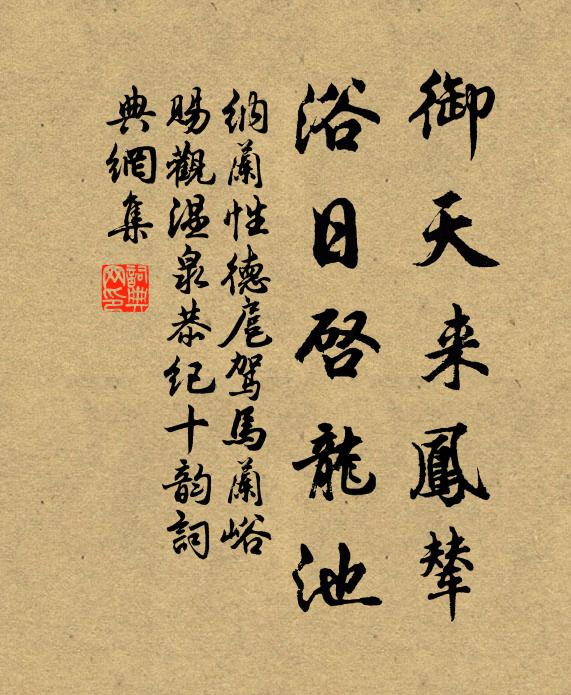 御天来鳳輦
浴日啓龍池
納蘭性德扈駕馬蘭峪
賜觀温泉恭紀十韵詞
典網集
詞典网印